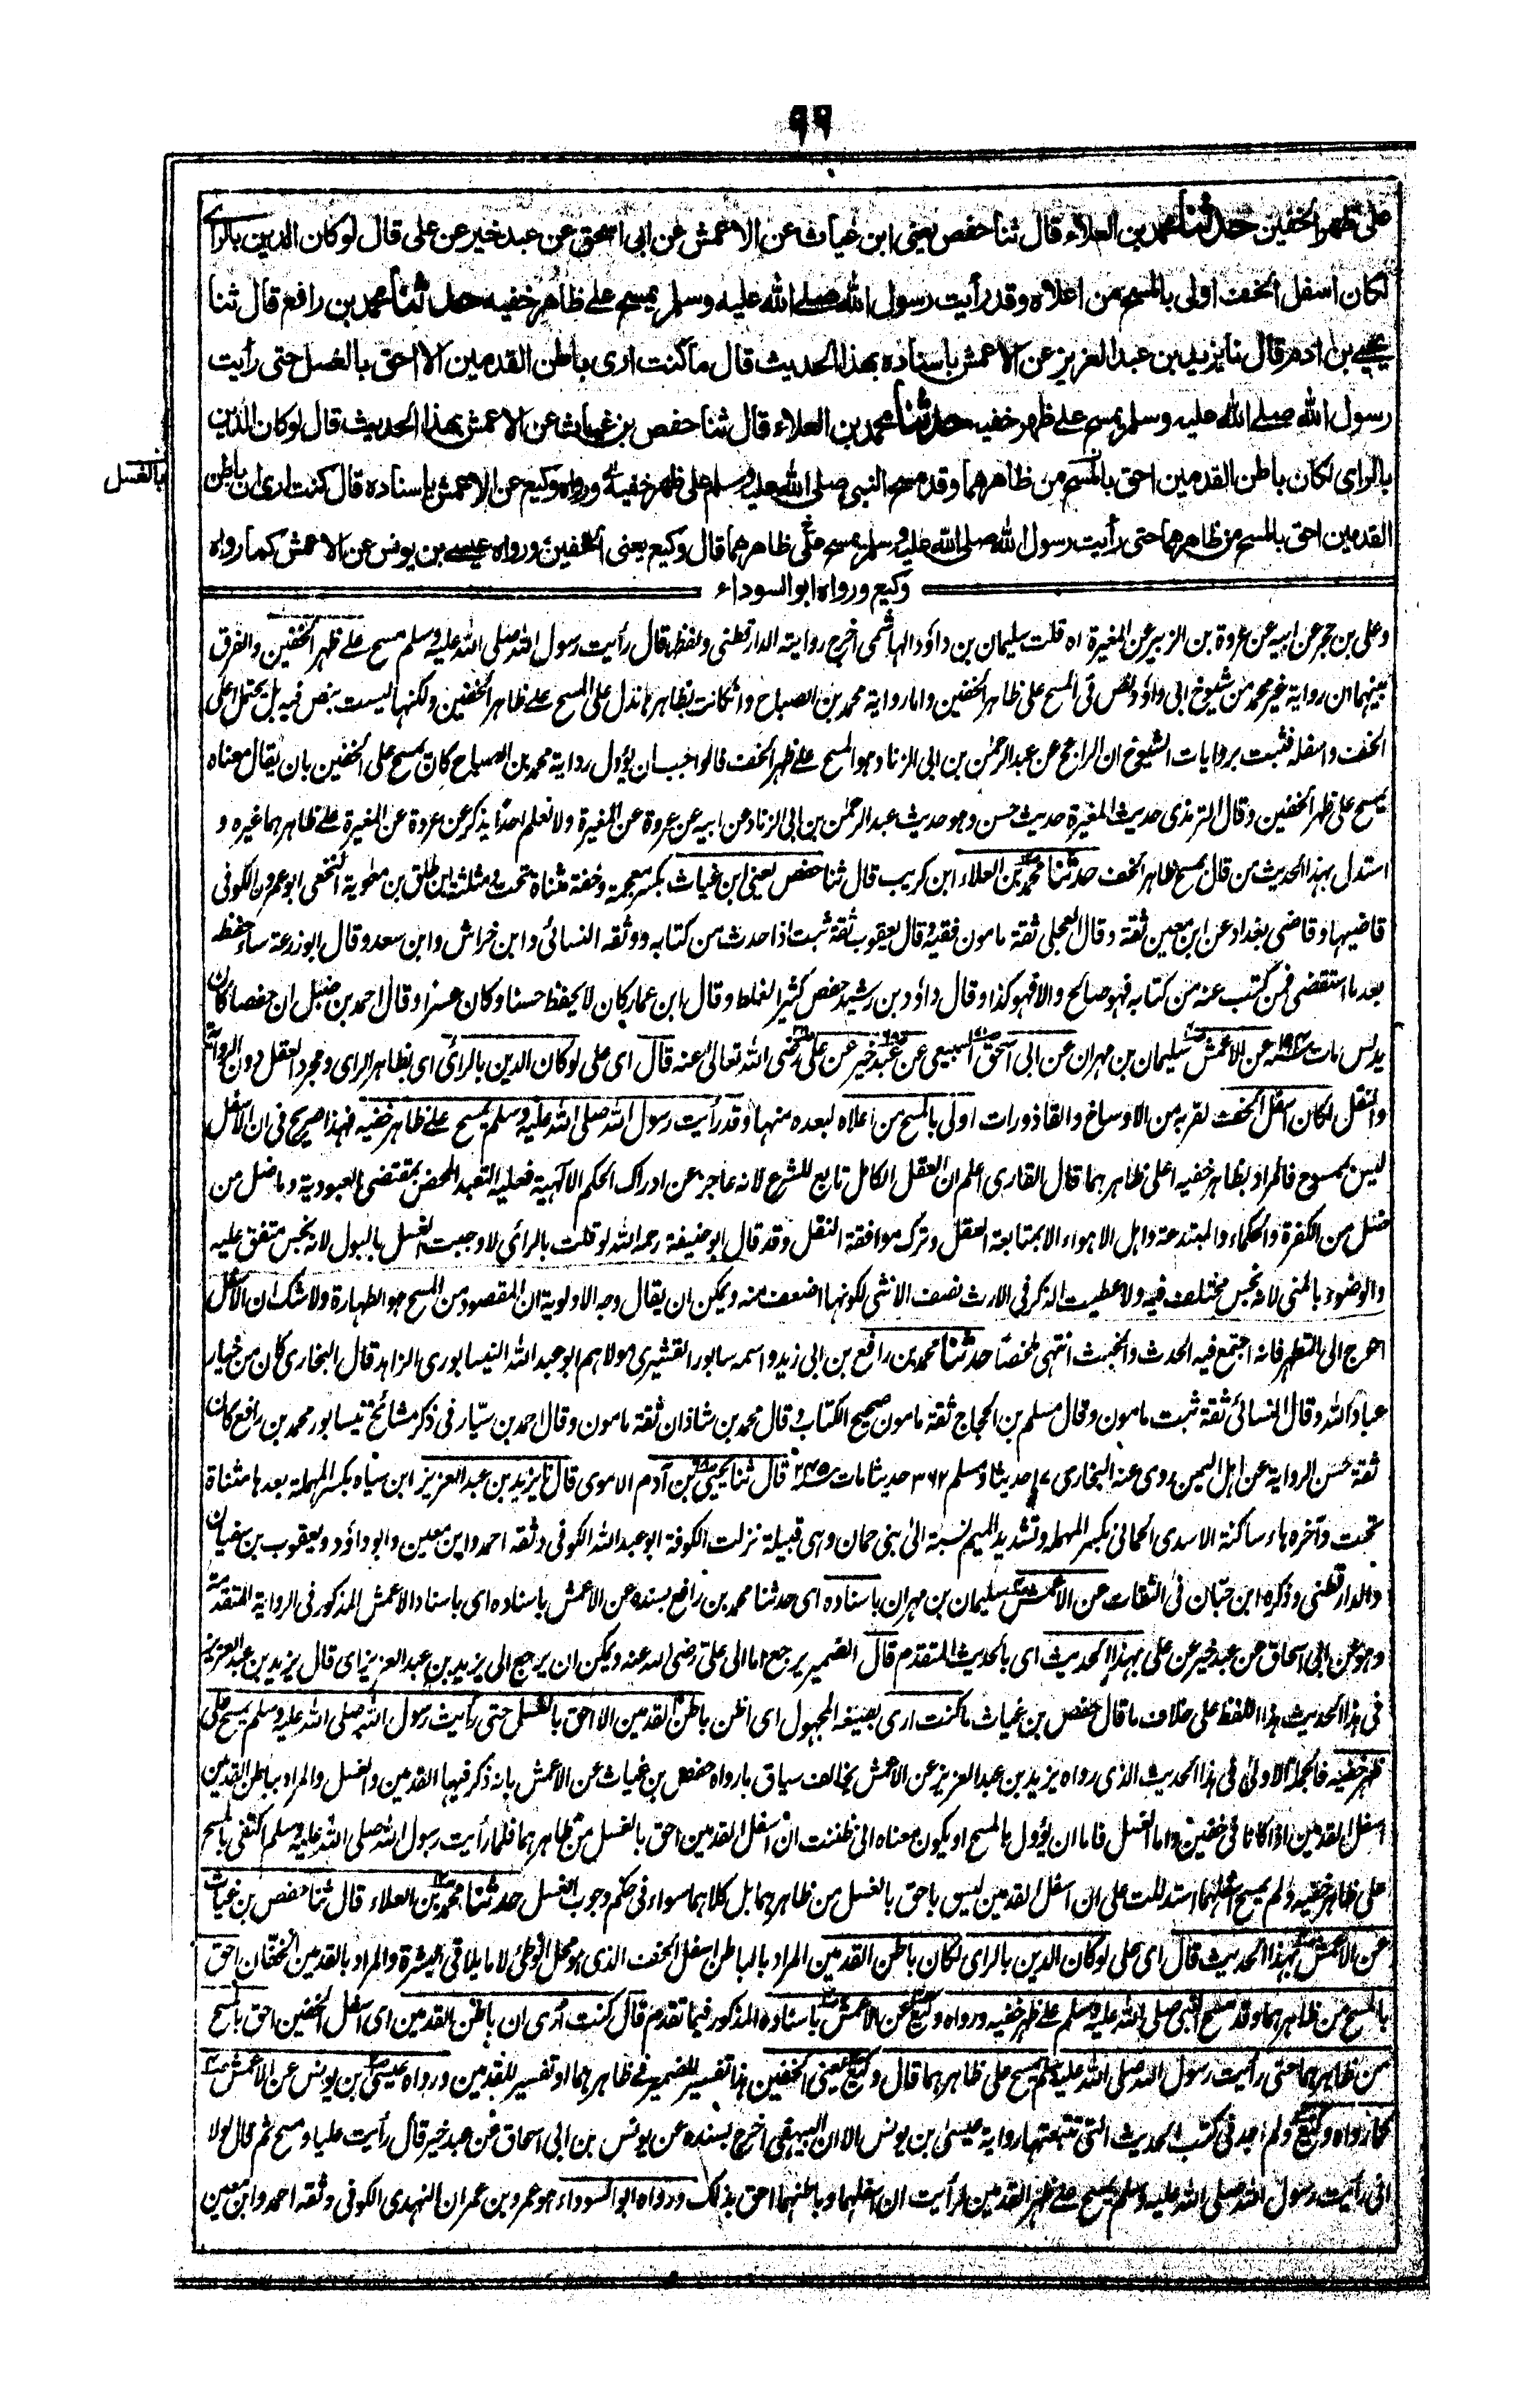 ٩٩
على ظهر الخفين حدثنا محمد بن العلاء قال ثنا حفص يعنى ابن غياث عن الاعمش عن ابى اسحق عن عبد خير عن على قال لو كان الدين بالراى
لكان اسفل الخف اولى بالمسح من اعلاه وقد رأيت رسول الله صلى الله عليه وسلم يمسح على ظاهر خفيه حدثنا محمد بن رافع قال ثنا
يحيى بن ادم قال نا يزيد بن عبد العزيز عن الاعمش باسناده بهذا الحديث قال ما كنت ارى باطن القدمين الا احق بالغسل حتى رأيت
رسول الله صلى الله عليه وسلم يمسح على ظهر خفيه حدثنا محمد بن العلاء قال ثنا حفص بن غياث عن الاعمش بهذا الحديث قال لو كان الدين
بالراى لكان باطن القدمين احق بالمسح من ظاهرهما وقد مسح النبى صلى الله عليه وسلم على ظهر خفيه ورواه وكيع عن الاعمش باسناده قال كنت ارى ان باطن
بالغسل
القدمين احق بالمسح من ظاهرهما حتى رأيت رسول الله صلى الله عليه وسلم يمسح على ظاهرهما قال وكيع يعنى الخفين ورواه عيسى بن يونس عن الاعمش كما رواه
وكيع ورواه ابو السوداء
وعلى بن حجر عن ابيه عن عروة بن الزبير عن المغيرة اه قلت سليمان بن داؤد الهاشمى اخرج روايته الدارقطنى ولفظه قال رأيت رسول الله صلى الله عليه وسلم مسح على ظهر الخفين والفرق
بينهما ان رواية غير محمد من شيوخ ابى داؤد ونص فى المسح على ظاهر الخفين واما رواية محمد بن الصباح وان كانت بظاهرها تدل على المسح على ظاهر الخفين ولكنها ليست بنص فيه بل يحتمل اعلى
الخف واسفله فثبت بروايات الشيوخ ان الراجح عن عبد الرحمن بن ابى الزناد هو المسح على ظهر الخف فالواجب ان يؤول رواية محمد بن الصباح كان يمسح على الخفين بان يقال معناه
يمسح على ظهر الخفين وقال الترمذى حديث المغيرة حديث حسن وهو حديث عبد الرحمن بن ابى الزناد عن ابيه عن عروة عن المغيرة ولا نعلم احدا يذكر عن عروة عن المغيرة على ظاهرهما غيره و
استدل بهذا الحديث من قال يمسح ظاهر الخف حدثنا محمد بن العلاء ابن كريب قال ثنا حفص يعنى ابن غياث بكسر معجمة وخفة مثناة تحت ومثلثة ابن طلق بن معوية النخعى ابو عمرو الكوفى
قاضيها وقاضى بغداد عن ابن معين ثقة وقال العجلى ثقة مامون فقيه وقال يعقوب ثقة ثبت اذا حدث من كتابه ووثقه النسائى وابن خراش وابن سعد وقال ابو زرعة ساء حفظه
بعد ما استقضى فمن كتب عنه من كتابه فهو صالح والا فهو كذا وقال داؤد بن رشيد حفص كثير الغلط وقال ابن عمار كان لا يحفظ حسنا وكان عسرا وقال احمد بن حنبل ان حفصا كان
يدلس مات عن الاعمش سليمان بن مهران عن ابى اسحق السبيعى عن عبد خير عن على رضى الله تعالى عنه قال اى على لو كان الدين بالرأى اى بظاهر الراى ومجرد العقل دون الرواية
والنقل لكان اسفل الخف لقربه من الاوساخ والقاذورات اولى بالمسح من اعلاه لبعده منها وقد رأيت رسول الله صلى الله عليه وسلم يمسح على ظاهر خفيه فهذا صريح فى ان الاسفل
ليس بمسوح فالمراد بظاهر خفيه اعلى ظاهرهما قال القارى اعلم ان العقل الكامل تابع للشرع لانه عاجز عن ادراك الحكم الالهية فعليه التعبد المحض بمقتضى العبودية وما ضل من
ضل من الكفرة والحكماء والمبتدعة واهل الاهواء الا بمتابعة العقل وترك موافقة النقل وقد قال ابو حنيفة رحمه الله لو قلت بالرأى لاوجبت الغسل بالبول لانه نجس متفق عليه
والوضوء بالمنى لانه نجس مختلف فيه ولاعطيت الذكر فى الارث نصف الانثى لكونها اضعف منه ويمكن ان يقال وجه الاولوية ان المقصود من المسح هو الطهارة ولا شك ان الاسفل
احوج الى التطهر فانه اجتمع فيه الحدث والخبث انتهى ملخصا حدثنا محمد بن رافع بن ابى زيد واسمه سابور القشيرى مولاهم ابو عبد الله النيسابورى الزاهد قال البخارى كان من خيار
عباد الله وقال النسائى ثقة ثبت مامون وقال مسلم بن الحجاج ثقة مامون صحيح الكتاب وقال محمد بن شاذان ثقة مامون وقال احمد بن سيار فى ذكر مشائخ نيسابور محمد بن رافع كان
ثقة حسن الرواية عن اهل اليمن روى عنه البخارى ١٧ حديثا ومسلم ٣٦٢ حديثا مات ٢٤٥ قال ثنا يحيى بن آدم الاموى قال نا يزيد بن عبد العزيز ابن سياه بكسر المهملة بعدها مثناة
تحت وآخره هاء ساكنة الاسدى الحمانى بكسر المهملة وتشديد الميم نسبة الى بنى حمان وهى قبيلة نزلت الكوفة ابو عبد الله الكوفى وثقه احمد وابن معين وابو داؤد ويعقوب بن سفيان
والدارقطنى وذكره ابن حبان فى الثقات عن الاعمش سليمان بن مهران باسناده اى حدثنا محمد بن رافع بسنده عن الاعمش باسناده اى باسناد الاعمش المذكور فى الرواية المتقدمة
وهو عن ابى اسحاق عن عبد خير عن على بهذا الحديث اى بالحديث المتقدم قال الضمير يرجع اما الى على رضى الله عنه ويمكن ان يرجع الى يزيد بن عبد العزيز اى قال يزيد بن عبد العزيز
فى هذا الحديث هذا اللفظ على خلاف ما قال حفص بن غياث ما كنت ارى بصيغة المجهول اى اظن باطن القدمين الا احق بالغسل حتى رأيت رسول الله صلى الله عليه وسلم يمسح على
ظهر خفيه فالجملة الاولى فى هذا الحديث الذى رواه يزيد بن عبد العزيز عن الاعمش يخالف سياق ما رواه حفص بن غياث عن الاعمش بانه ذكر فيها القدمين والغسل والمراد بباطن القدمين
اسفل القدمين اذا كانا فى خفين واما الغسل فاما ان يؤول بالمسح او يكون معناه انى ظننت ان اسفل القدمين احق بالغسل من ظاهرهما فلما رأيت رسول الله صلى الله عليه وسلم اكتفى بالمسح
على ظاهر خفيه ولم يمسح اسفلهما استدللت على ان اسفل القدمين ليس باحق بالغسل من ظاهرهما بل كلاهما سواء فى حكم وجوب الغسل حدثنا محمد بن العلاء قال ثنا حفص بن غياث
عن الاعمش بهذا الحديث قال اى على لو كان الدين بالراى لكان باطن القدمين المراد بالباطن اسفل الخف الذى هو محل الوطئ لا ما يلاقى البشرة والمراد بالقدمين الخفان احق
بالمسح من ظاهرهما وقد مسح النبى صلى الله عليه وسلم على ظهر خفيه ورواه وكيع عن الاعمش باسناده المذكور فيما تقدم قال كنت أرى ان باطن القدمين اى اسفل الخفين احق بالمسح
من ظاهرهما حتى رأيت رسول الله صلى الله عليه وسلم يمسح على ظاهرهما قال وكيع يعنى الخفين هذا تفسير للضمير فى ظاهرهما او تفسير للقدمين ورواه عيسى بن يونس عن الاعمش
كما رواه وكيع ولم اجد فى كتب الحديث التى تتبعتها رواية عيسى بن يونس الا ان البيهقى اخرج بسنده عن يونس بن ابى اسحاق عن عبد خير قال رأيت عليا ومسح ثم قال لولا
انى رأيت رسول الله صلى الله عليه وسلم يمسح على ظهر القدمين لرأيت ان اسفلهما وباطنهما احق بذلك ورواه ابو السوداء هو عمرو بن عمران النهدى الكوفى وثقه احمد وابن معين